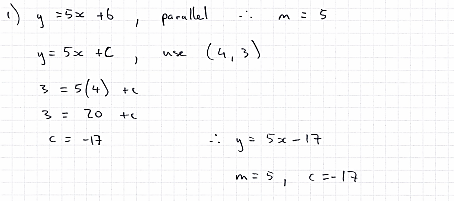 1) y = 5x + 6 , parallel ∴ m = 5
y = 5x + C , use (4, 3)
3 = 5(4) + c
3 = 20 + c
c = -17
∴ y = 5x - 17
m = 5 , c = -17